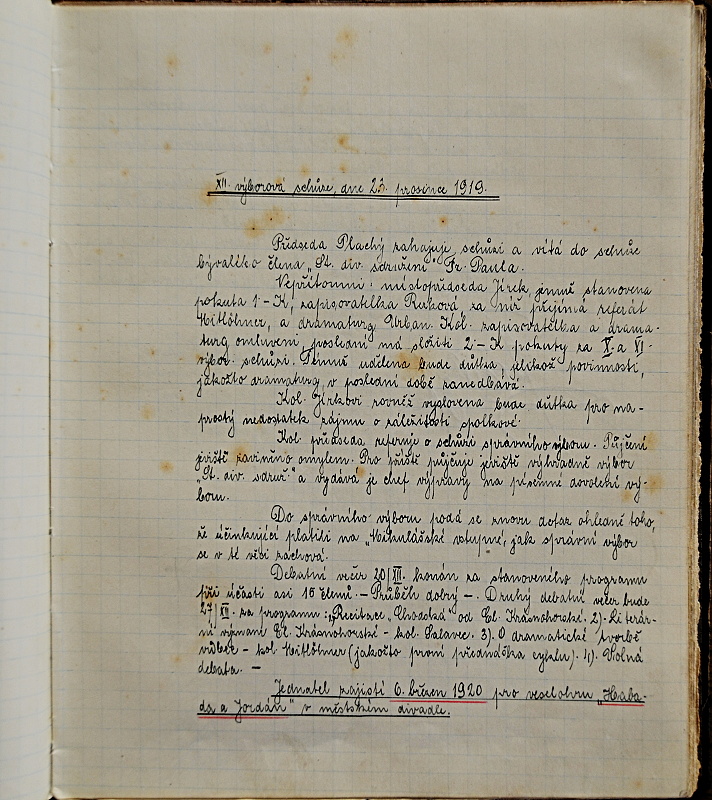 XII. výborová schůze, dne 23. prosince 1919.
Předseda Plachý zahajuje schůzi a vítá do schůze
bývalého člena „St. div. sdružení" Fr. Paula.
Nepřítomni: místopředseda Jirek, jemuž stanovena
pokuta 1·–K, zapisovatelka Ruková, za níž přejímá referát
Mitlöhner, a dramaturg Urban. Kol. zapisovatelka a drama-
turg omluveni, poslední má složiti 2·–K pokuty za X. a XI.
výbor. schůzi. Témuž udělena bude důtka, jelikož povinnosti,
jakožto dramaturg, v poslední době zanedbává.
Kol. Jirkovi rovněž vyslovena bude důtka pro na-
prostý nedostatek zájmu o záležitosti spolkové.
Kol. předseda referuje o schůzi správního výboru. Půjčení
jeviště zaviněno omylem. Pro příště půjčuje jeviště výhradně výbor
„St. div. sdruž." a vydává je chef výpravy na písemné dovolení vý-
boru.
Do správního výboru podá se znovu dotaz ohledně toho,
že účinkující platili na „Mikulášské" vstupné, jak správní výbor
se v té věci zachová.
Debatní večer 20/XII. konán za stanoveného programu
při účasti asi 15 členů. – Průběh dobrý –. Druhý debatní večer bude
27/XII. za programu: „Recitace „Chodská" od El. Krásnohorské. 2). Literár-
ní význam El. Krásnohorské – kol. Salavec. 3). O dramatické tvorbě
vůbec – kol Mitlöhner (jakožto první přednáška cyklu). 4). Volná
debata. –
Jednatel zajistí 6. březen 1920 pro veselohru „Haba-
da a Jordán" v městském divadle.